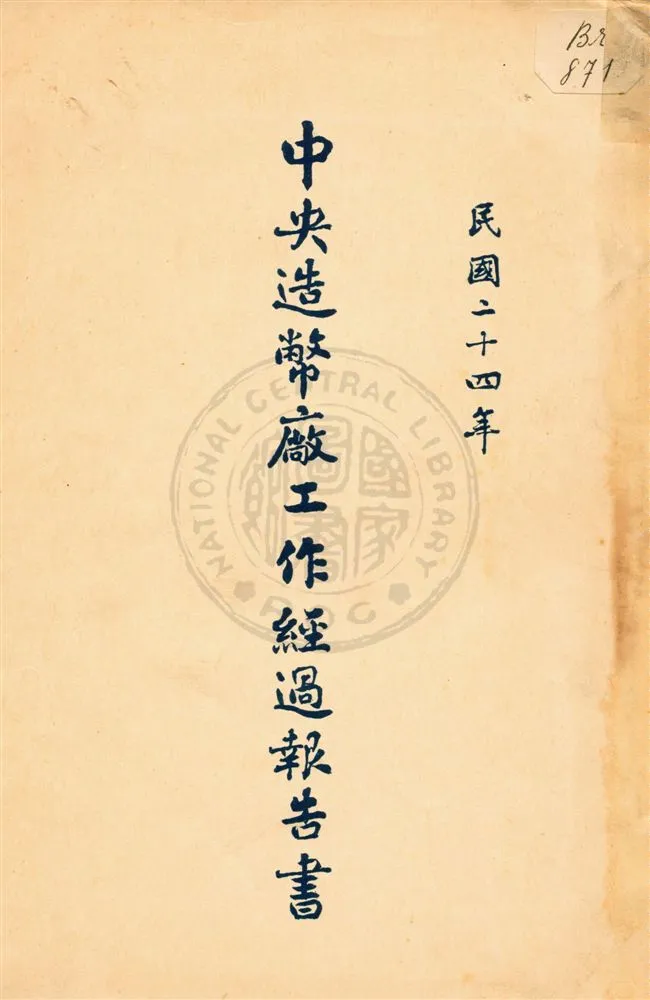 民國二十四年
中央造幣廠工作經過報告書
Br
871
NATIONAL CENTRAL LIBRARY
R.O.C
國家圖書館